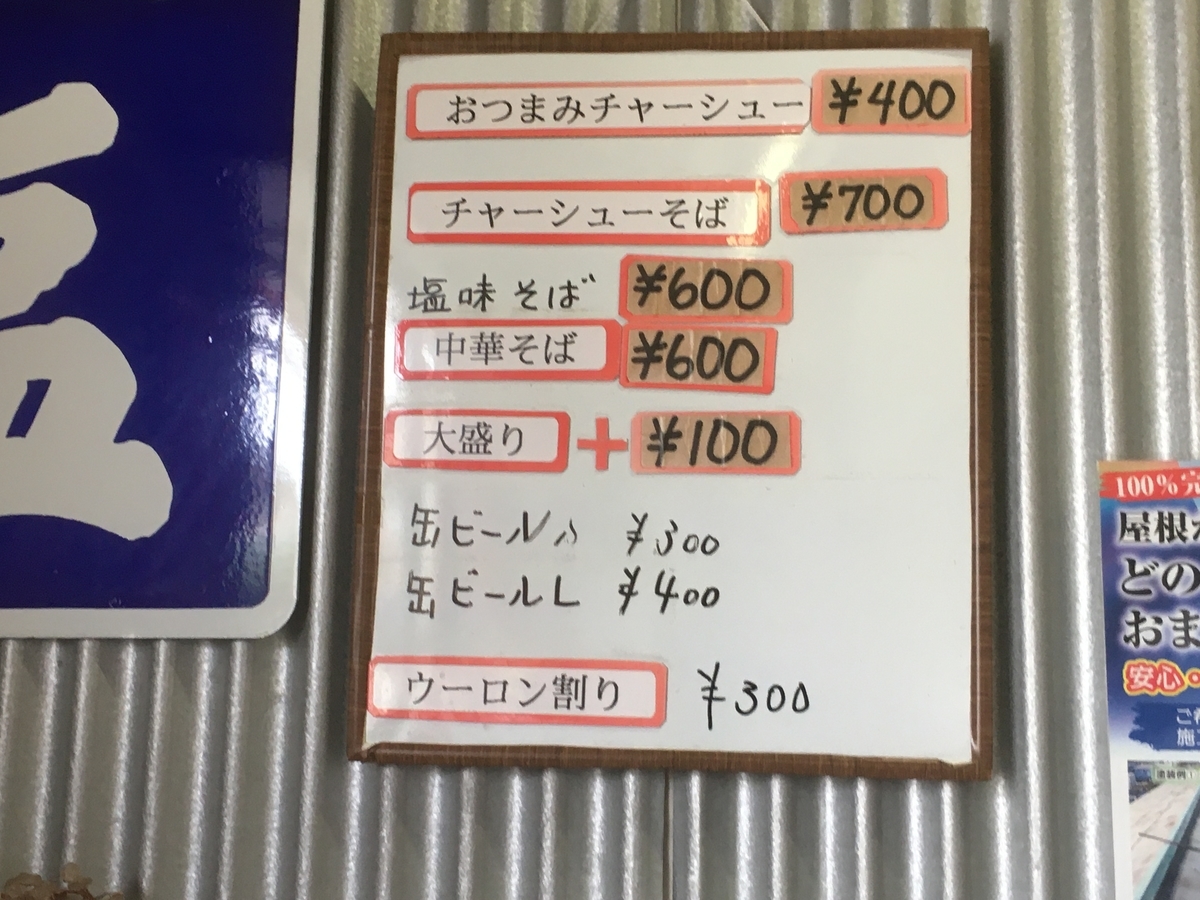 おつまみチャーシュー ¥400
チャーシューそば ¥700
塩味そば ¥600
中華そば ¥600
大盛り + ¥100
缶ビール小 ¥300
缶ビールL ¥400
ウーロン割り ¥300
100%完
屋根
どの
おま
安心・
施工
塗装例